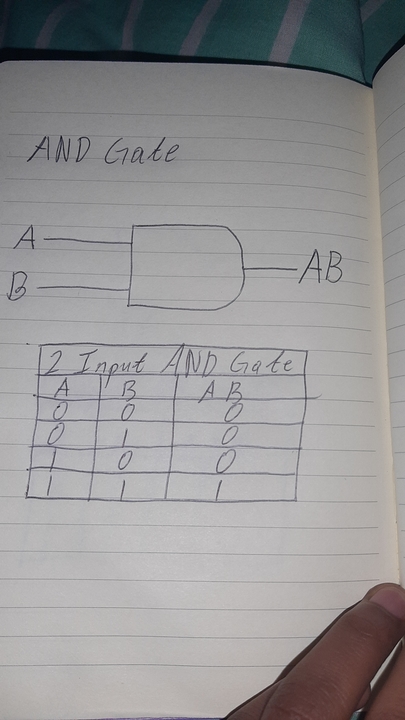 AND Gate
A
AB
B
2 Input AND Gate
A B AB
0 0 0
0 1 0
1 0 0
1 1 1